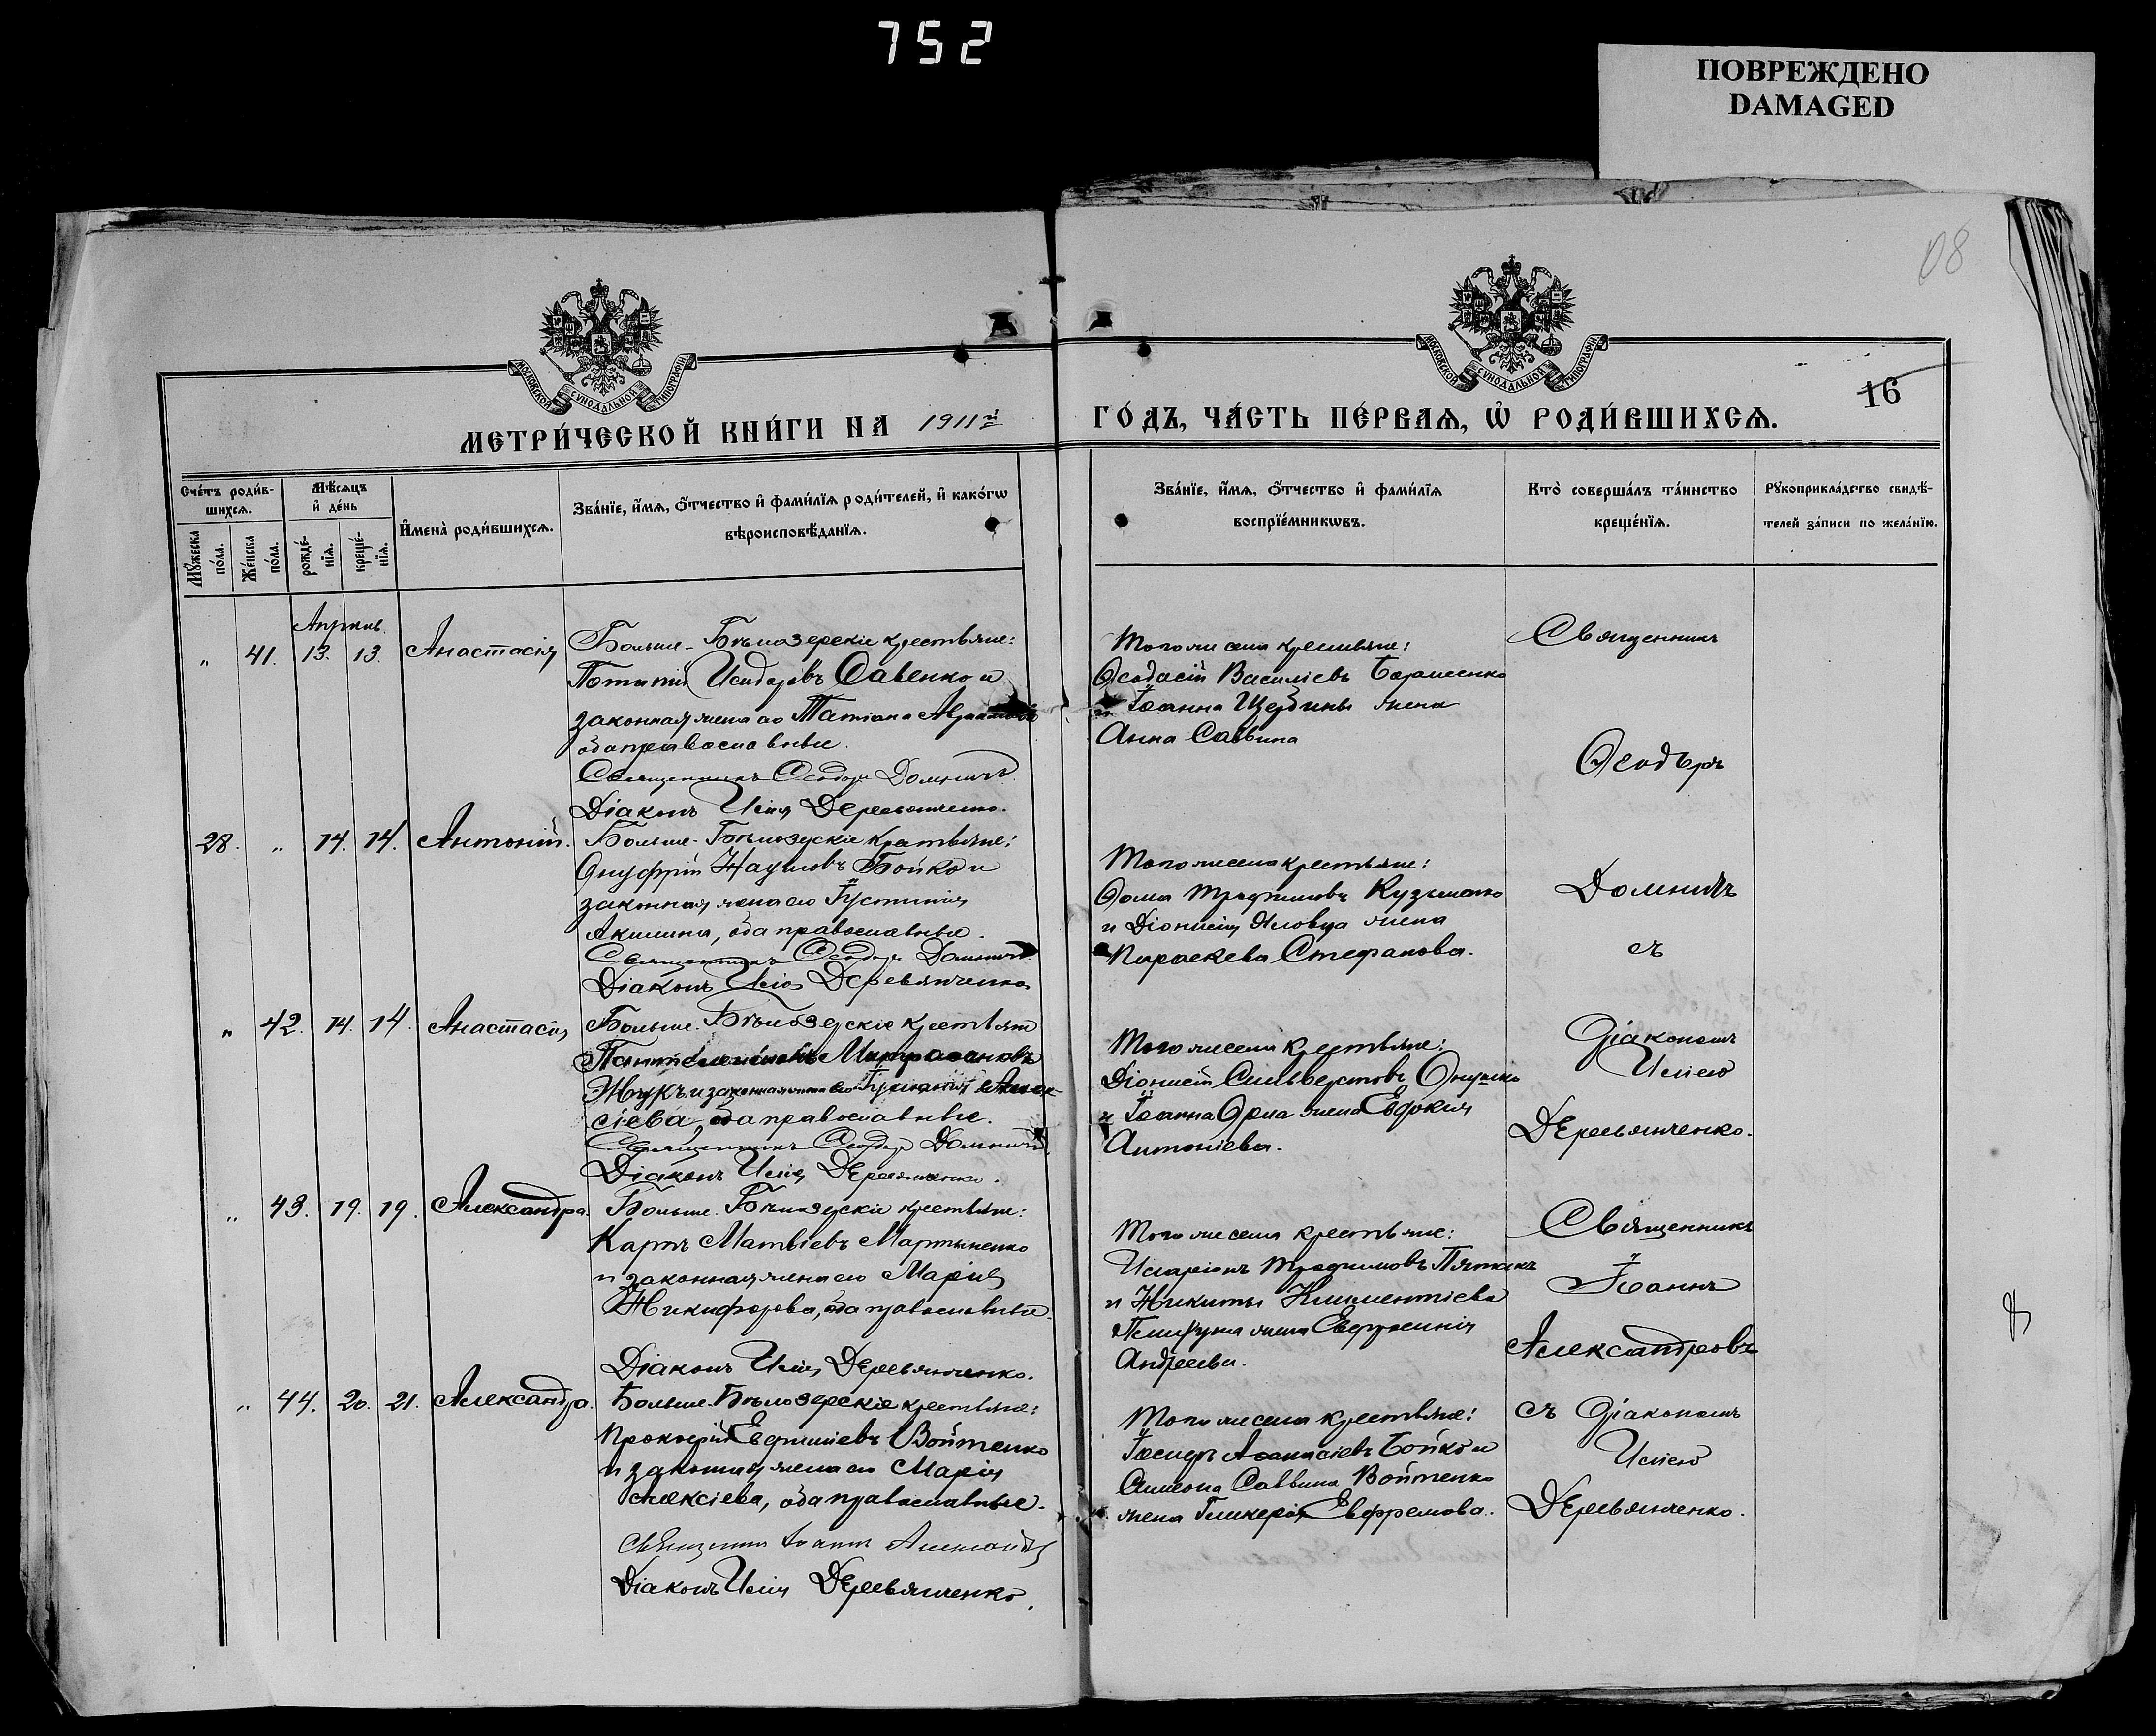 752
ПОВРЕЖДЕНО
DAMAGED
08
МОСКОВСКОЙ СУНОДАЛЬНОЙ ТИПОГРАФІИ
МОСКОВСКОЙ СУНОДАЛЬНОЙ ТИПОГРАФІИ
16
МЕТРИ́ЧЕСКОЙ КНИ́ГИ НА 1911й ГО́ДЪ, ЧА́СТЬ ПЕ́РВАѦ, Ѡ҆ РОДИ́ВШИХСѦ.
Сче́тъ роди́в-
шихсѧ.
Мꙋ́жеска
по́ла.
Же́нска
по́ла.
Мѣ́сѧцъ
и҆ де́нь
рожде́-
нїѧ.
креще́-
нїѧ.
И҆мена̀ роди́вшихсѧ.
Зва́нїе, и҆́мѧ, ѻ҆́тчество и҆ фами́лїѧ роди́телей, и҆ како́гѡ
вѣроисповѣ́данїѧ.
Зва́нїе, и҆́мѧ, ѻ҆́тчество и҆ фами́лїѧ
воспрїе́мникѡвъ.
Кто̀ соверша́лъ та́инство
креще́нїѧ.
Рꙋкоприкла́дство свидѣ́-
телей за́писи по жела́нїю.
Апрѣль.
" 41. 13. 13. Анастасія
Больше-Бѣлозерскіе крестьяне:
Потапій Исидоровъ Савенко и
законная жена его Татіана
оба православные.
Священникъ Ѳеодоръ Домничъ
Діаконъ Илія Деревянченко.
Того же села крестьяне:
Ѳеодосій Василіевъ Борисенко
и Іоанна Щербины жена
Анна Саввина
Священникъ
Ѳеодоръ
28. " 14. 14. Антоній.
Больше-Бѣлозерскіе крестьяне:
Онуфрій Наумовъ Бойко и
законная жена его Іустинія
Акилина, оба православные.
Священникъ Ѳеодоръ Домничъ
Діаконъ Илія Деревянченко
Того же села крестьяне:
Ѳома Трофимовъ Кузьменко
и Діонисія жена
Параскева Стефанова.
Домничъ
съ
" 42. 14. 14. Анастасія
Больше-Бѣлозерскіе крестьяне
Пантелеимонъ Митрофановъ
Жукъ и законная жена его Алек-
сіева, оба православные.
Священникъ Ѳеодоръ Домничъ
Діаконъ Илія Деревянченко.
Того же села крестьяне:
Діонисій Сильверстовъ Онушко
и Іоанна жена Евдокія
Антоніева.
Діакономъ
Иліею
Деревянченко.
" 43. 19. 19. Александра.
Больше-Бѣлозерскіе крестьяне:
Карпъ Матвіевъ Мартыненко
и законная жена его Марія
Никифорова, оба православные.
Діаконъ Илія Деревянченко.
Того же села крестьяне:
Иларіонъ Трофимовъ
и Никиты Климентіева
жена Евфросинія
Андреева.
Священникъ
Іоаннъ
Александровъ
" 44. 20. 21. Александра.
Больше-Бѣлозерскіе крестьяне:
Прокопій Евфиміевъ Войтенко
и законная жена его Марія
Алексіева, оба православные.
Священникъ Іоаннъ
Діаконъ Илія Деревянченко.
Того же села крестьяне:
Іосифъ Аѳанасіевъ Бойко и
Симеона Саввина Войтенко
жена Гликерія Евфремова.
съ Діакономъ
Иліею
Деревянченко.